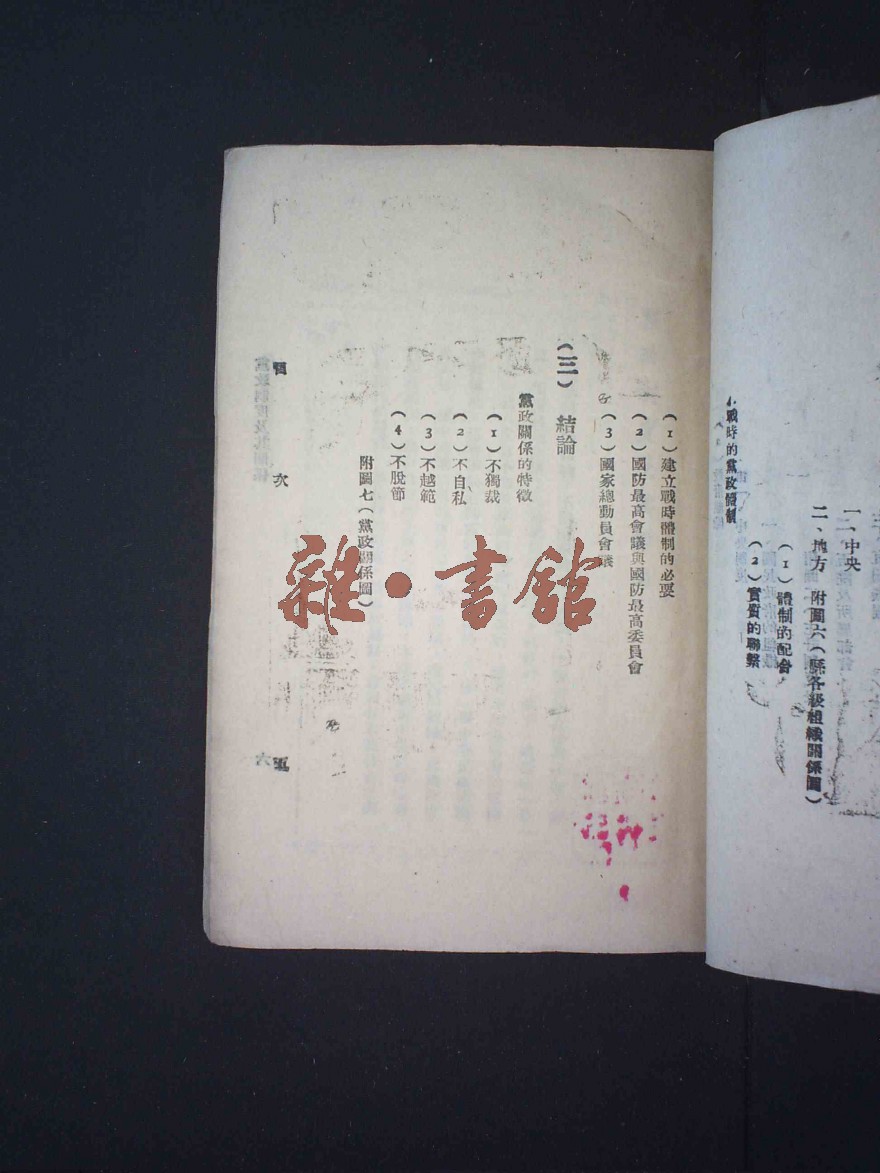 一、中央
二、地方　附圖六（縣各級組織關係圖）
（1）體制的配合
（2）實質的聯繫
戰時的黨政體制
（1）建立戰時體制的必要
（2）國防最高會議與國防最高委員會
（3）國家總動員會議
（三）　結論
黨政關係的特徵
（1）不獨裁
（2）不自私
（3）不越範
（4）不脫節
附圖七（黨政關係圖）
目　次
雜·書館